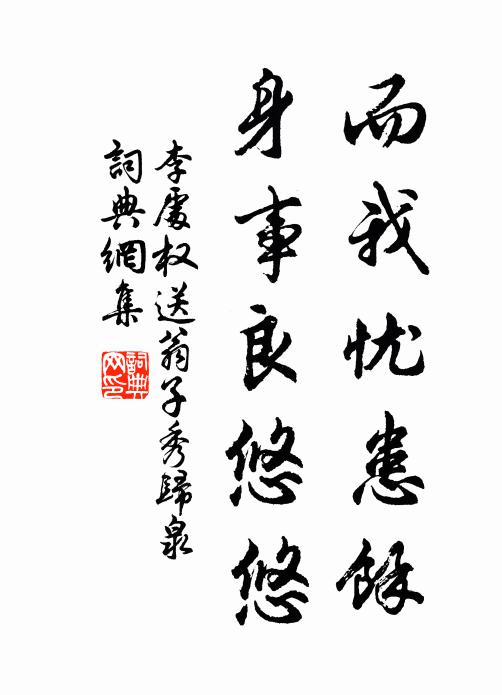 而我忧患馀
身事良悠悠
李處权送翁子秀歸泉
詞典網集
詞典网印